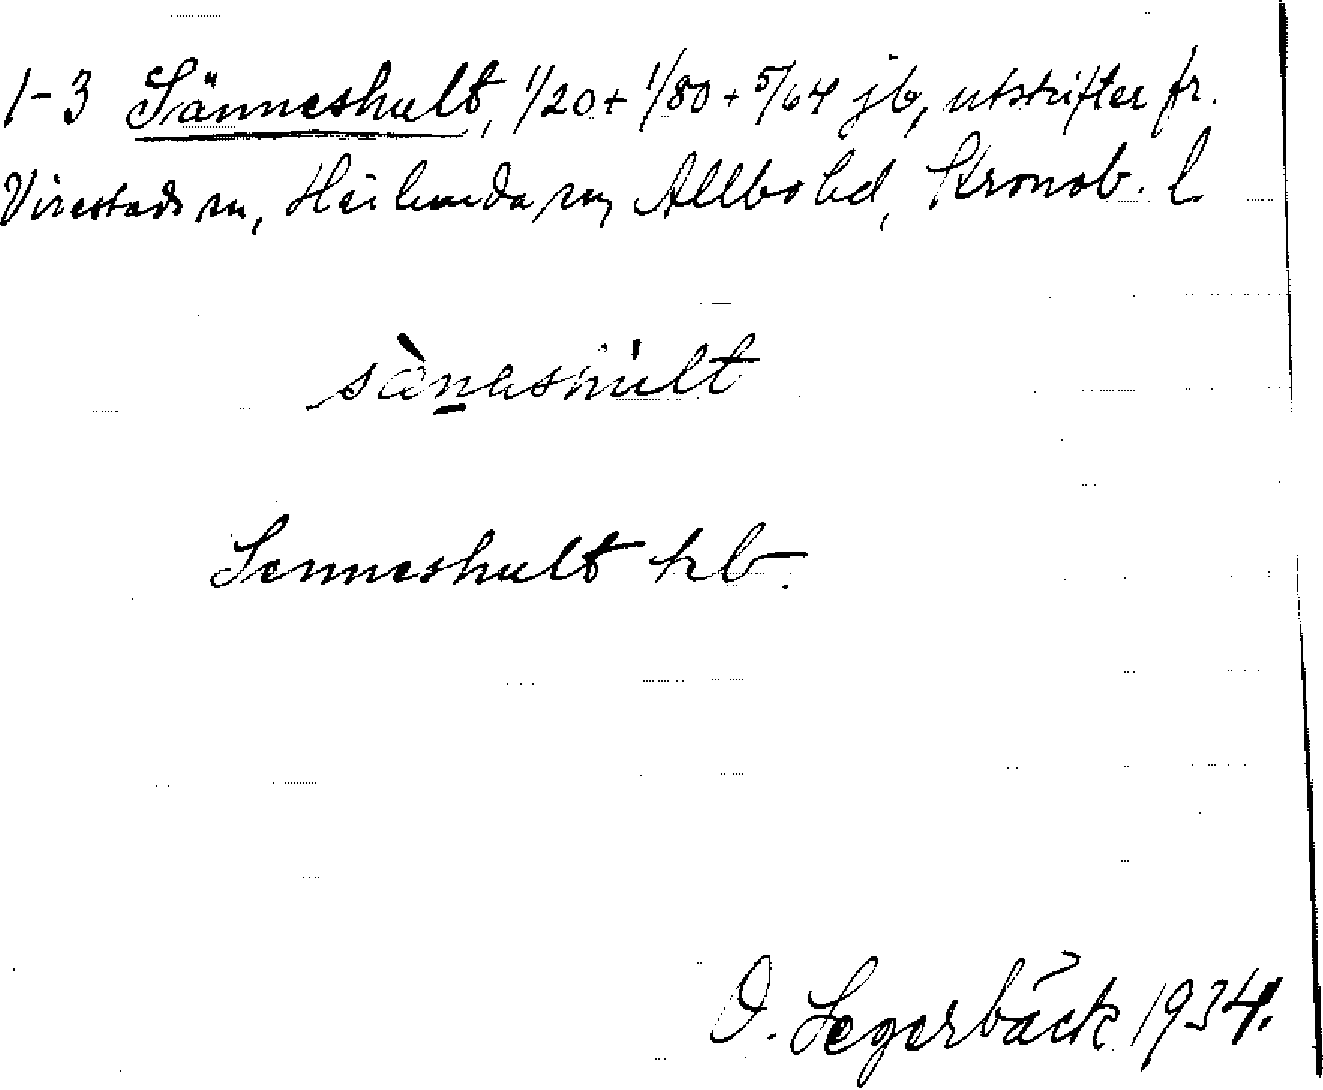 1-3 Sänneshult, 1/20 + 1/80 + 5/64 jb, utskifter fr.
Virestads sn, Härlunda sn, Allbo hd, Kronob. l
sä̀nashúlt
Senneshult kb.
O. Segerbäck 1934.